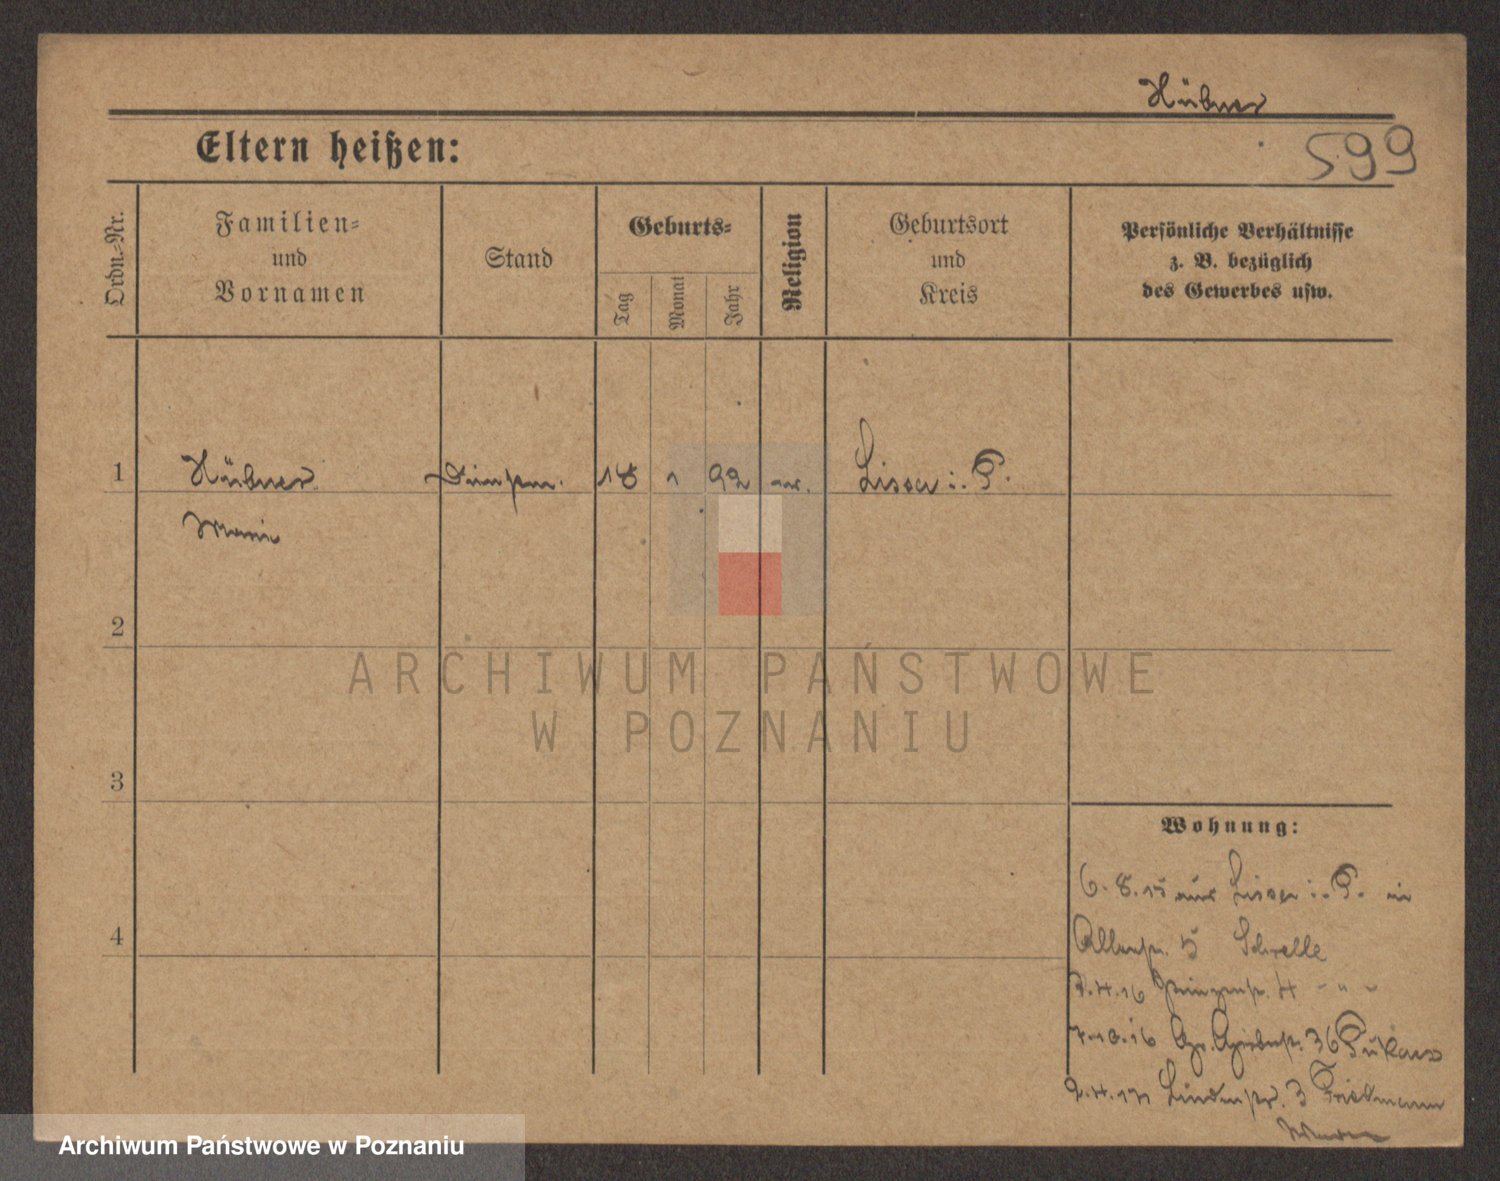 Hübner
Eltern heißen:
599
Ordn.-Nr.
Familien-
und
Vornamen
Stand
Geburts-
Tag
Monat
Jahr
Religion
Geburtsort
und
Kreis
Persönliche Verhältnisse
z. B. bezüglich
des Gewerbes usw.
1 Hübner 18 1 92 Lissa i. P.
Marie
2
ARCHIWUM PAŃSTWOWE
W POZNANIU
3
Wohnung:
6. 8. 15 aus Lissa i. P. in
4
5 Schwelle
4 - " -
7.10.16 Gr. 36
2.4.17 Lindenstr. 3 Friedmann
Archiwum Państwowe w Poznaniu